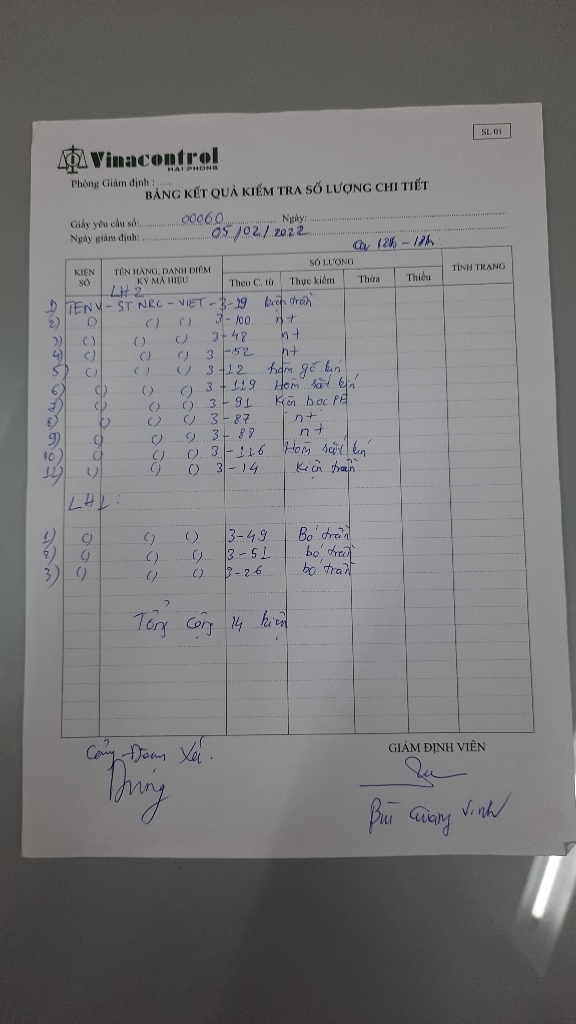 SL 01
Vinacontrol
HAI PHONG
Phòng Giám định : ......
BẢNG KẾT QUẢ KIỂM TRA SỐ LƯỢNG CHI TIẾT
Giấy yêu cầu số: 00060 Ngày:
Ngày giám định: 05/02/2022
Ca 12h - 18h
KIỆN SỐ TÊN HÀNG, DANH ĐIỂM KÝ MÃ HIỆU SỐ LƯỢNG TÌNH TRẠNG
Theo C. từ Thực kiểm Thừa Thiếu
LH2
1) TENV - ST NRC - VIET - 3-19 kiện trần
2) () () () 3-100 nt
3) () () () 3-48 nt
4) () () () 3-52 nt
5) () () () 3-12 hòm gỗ kín
6) () () () 3-119 Hòm sắt kín
7) () () () 3-91 Kiện bọc PE
8) () () () 3-87 nt
9) () () () 3-88 nt
10) () () () 3-116 Hòm sắt kín
11) () () () 3-14 Kiện trần
LH1:
1) () () () 3-49 Bó trần
2) () () () 3-51 bó trần
3) () () () 3-26 bó trần
Tổng cộng 14 kiện
GIÁM ĐỊNH VIÊN
Dũng
Bùi Quang Vinh